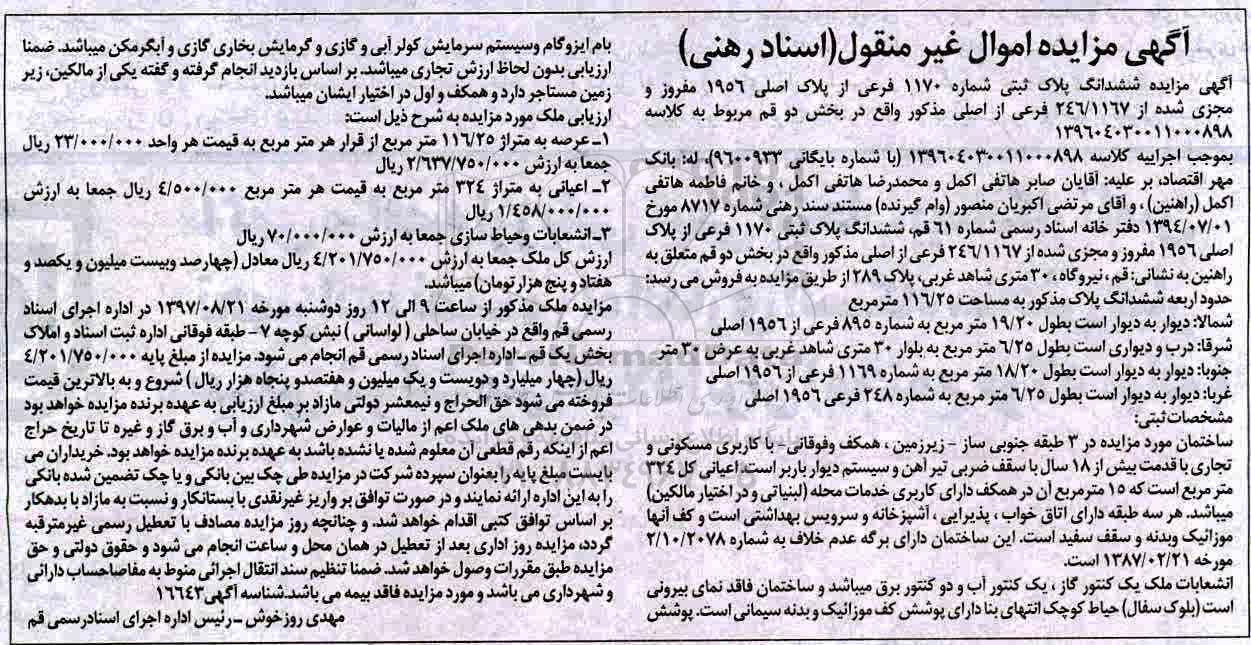 آگهی مزایده اموال غیر منقول(اسناد رهنی)
آگهی مزایده ششدانگ پلاک ثبتی شماره ۱۱۷۰ فرعی از پلاک اصلی ۱۹۵۶ مفروز و
مجزی شده از ۲٤٦/۱۱٦۷ فرعی از اصلی مذکور واقع در بخش دو قم مربوط به کلاسه
۱۳۹٦۰٤۰۳۰۰۱۱۰۰۰۸۹۸
بموجب اجراییه کلاسه ۱۳۹٦۰٤۰۳۰۰۱۱۰۰۰۸۹۸ (با شماره بایگانی ۹٦۰۰۹۳۳)، له: بانک
مهر اقتصاد، بر علیه: آقایان صابر هاتفی اکمل و محمدرضا هاتفی اکمل ، و خانم فاطمه هاتفی
اکمل (راهنین) ، و اقای مرتضی اکبریان منصور (وام گیرنده) مستند سند رهنی شماره ۸۷۱۷ مورخ
۱۳۹٤/۰۷/۰۱ دفتر خانه اسناد رسمی شماره ٦۱ قم، ششدانگ پلاک ثبتی ۱۱۷۰ فرعی از پلاک
اصلی ۱۹۵٦ مفروز و مجزی شده از ۲٤٦/۱۱٦۷ فرعی از اصلی مذکور واقع در بخش دو قم متعلق به
راهنین به نشانی: قم ، نیروگاه ، ۳۰ متری شاهد غربی، پلاک ۲۸۹ از طریق مزایده به فروش می رسد:
حدود اربعه ششدانگ پلاک مذکور به مساحت ۱۱٦/۲۵ مترمربع
شمالا: دیوار به دیوار است بطول ۱۹/۲۰ متر مربع به شماره ۸۹۵ فرعی از ۱۹۵٦ اصلی
شرقا: درب و دیواری است بطول ٦/۲۵ متر مربع به بلوار ۳۰ متری شاهد غربی به عرض ۳۰ متر
جنوبا: دیوار به دیوار است بطول ۱۸/۲۰ متر مربع به شماره ۱۱٦۹ فرعی از ۱۹۵٦ اصلی
غربا: دیوار به دیوار است بطول ٦/۲۵ متر مربع به شماره ۲٤۸ فرعی ۱۹۵٦ اصلی
مشخصات ثبتی:
ساختمان مورد مزایده در ۳ طبقه جنوبی ساز – زیرزمین ، همکف وفوقانی- با کاربری مسکونی و
تجاری با قدمت بیش از ۱۸ سال با سقف ضربی تیر آهن و سیستم دیوار باربر است. اعیانی کل ۳۲٤
متر مربع است که ۱۵ مترمربع آن در همکف دارای کاربری خدمات محله (لبنیاتی و در اختیار مالکین)
میباشد. هر سه طبقه دارای اتاق خواب ، پذیرایی ، آشپزخانه و سرویس بهداشتی است و کف آنها
موزائیک وبدنه و سقف سفید است. این ساختمان دارای برگه عدم خلاف به شماره ۲/۱۰/۲۰۷۸
مورخه ۱۳۸۷/۰۲/۲۱ است.
انشعابات ملک یک کنتور گاز ، یک کنتور آب و دو کنتور برق میباشد و ساختمان فاقد نمای بیرونی
است (بلوک سفال) حیاط کوچک انتهای بنا دارای پوشش کف موزائیک و بدنه سیمانی است. پوشش
بام ایزوگام وسیستم سرمایش کولر آبی و گازی و گرمایش بخاری گازی و آبگرمکن میباشد. ضمنا
ارزیابی بدون لحاظ ارزش تجاری میباشد. بر اساس بازدید انجام گرفته و گفته یکی از مالکین، زیر
زمین مستاجر دارد و همکف و اول در اختیار ایشان میباشد.
ارزیابی ملک مورد مزایده به شرح ذیل است:
۱ـ عرصه به متراژ ۱۱٦/۲۵ متر مربع از قرار هر متر مربع به قیمت هر واحد ۲۳/۰۰۰/۰۰۰ ریال
جمعا به ارزش ۲/٦۳۷/۷۵۰/۰۰۰ ریال
۲ـ اعیانی به متراژ ۳۲٤ متر مربع به قیمت هر متر مربع ٤/۵۰۰/۰۰۰ ریال جمعا به ارزش
۱/٤۵۸/۰۰۰/۰۰۰ ریال
۳ـ انشعابات وحیاط سازی جمعا به ارزش ۷۰/۰۰۰/۰۰۰ ریال
ارزش کل ملک جمعا به ارزش ٤/۲۰۱/۷۵۰/۰۰۰ ریال معادل (چهارصد وبیست میلیون و یکصد و
هفتاد و پنج هزار تومان) میباشد.
مزایده ملک مذکور از ساعت ۹ الی ۱۲ روز دوشنبه مورخه ۱۳۹۷/۰۸/۲۱ در اداره اجرای اسناد
رسمی قم واقع در خیابان ساحلی ( لواسانی ) نبش کوچه ۷ – طبقه فوقانی اداره ثبت اسناد و املاک
بخش یک قم ـ اداره اجرای اسناد رسمی قم انجام می شود. مزایده از مبلغ پایه ٤/۲۰۱/۷۵۰/۰۰۰
ریال (چهار میلیارد و دویست و یک میلیون و هفتصدو پنجاه هزار ریال ) شروع و به بالاترین قیمت
فروخته می شود حق الحراج و نیمعشر دولتی مازاد بر مبلغ ارزیابی به عهده برنده مزایده خواهد بود
در ضمن بدهی های ملک اعم از مالیات و عوارض شهرداری و آب و برق گاز و غیره تا تاریخ حراج
اعم از اینکه رقم قطعی آن معلوم شده یا نشده باشد به عهده برنده مزایده خواهد بود. خریداران می
بایست مبلغ پایه را بعنوان سپرده شرکت در مزایده طی چک بین بانکی و یا چک تضمین شده بانکی
را به این اداره ارائه نمایند و در صورت توافق بر واریز غیرنقدی با بستانکار و نسبت به مازاد با بدهکار
بر اساس توافق کتبی اقدام خواهد شد. و چنانچه روز مزایده مصادف با تعطیل رسمی غیرمترقبه
گردد، مزایده روز اداری بعد از تعطیل در همان محل و ساعت انجام می شود و حقوق دولتی و حق
مزایده طبق مقررات وصول خواهد شد. ضمنا تنظیم سند انتقال اجرائی منوط به مفاصاحساب دارائی
و شهرداری می باشد و مورد مزایده فاقد بیمه می باشد.شناسه آگهی۱٦٦٤۳
مهدی روزخوش ـ رئیس اداره اجرای اسنادرسمی قم